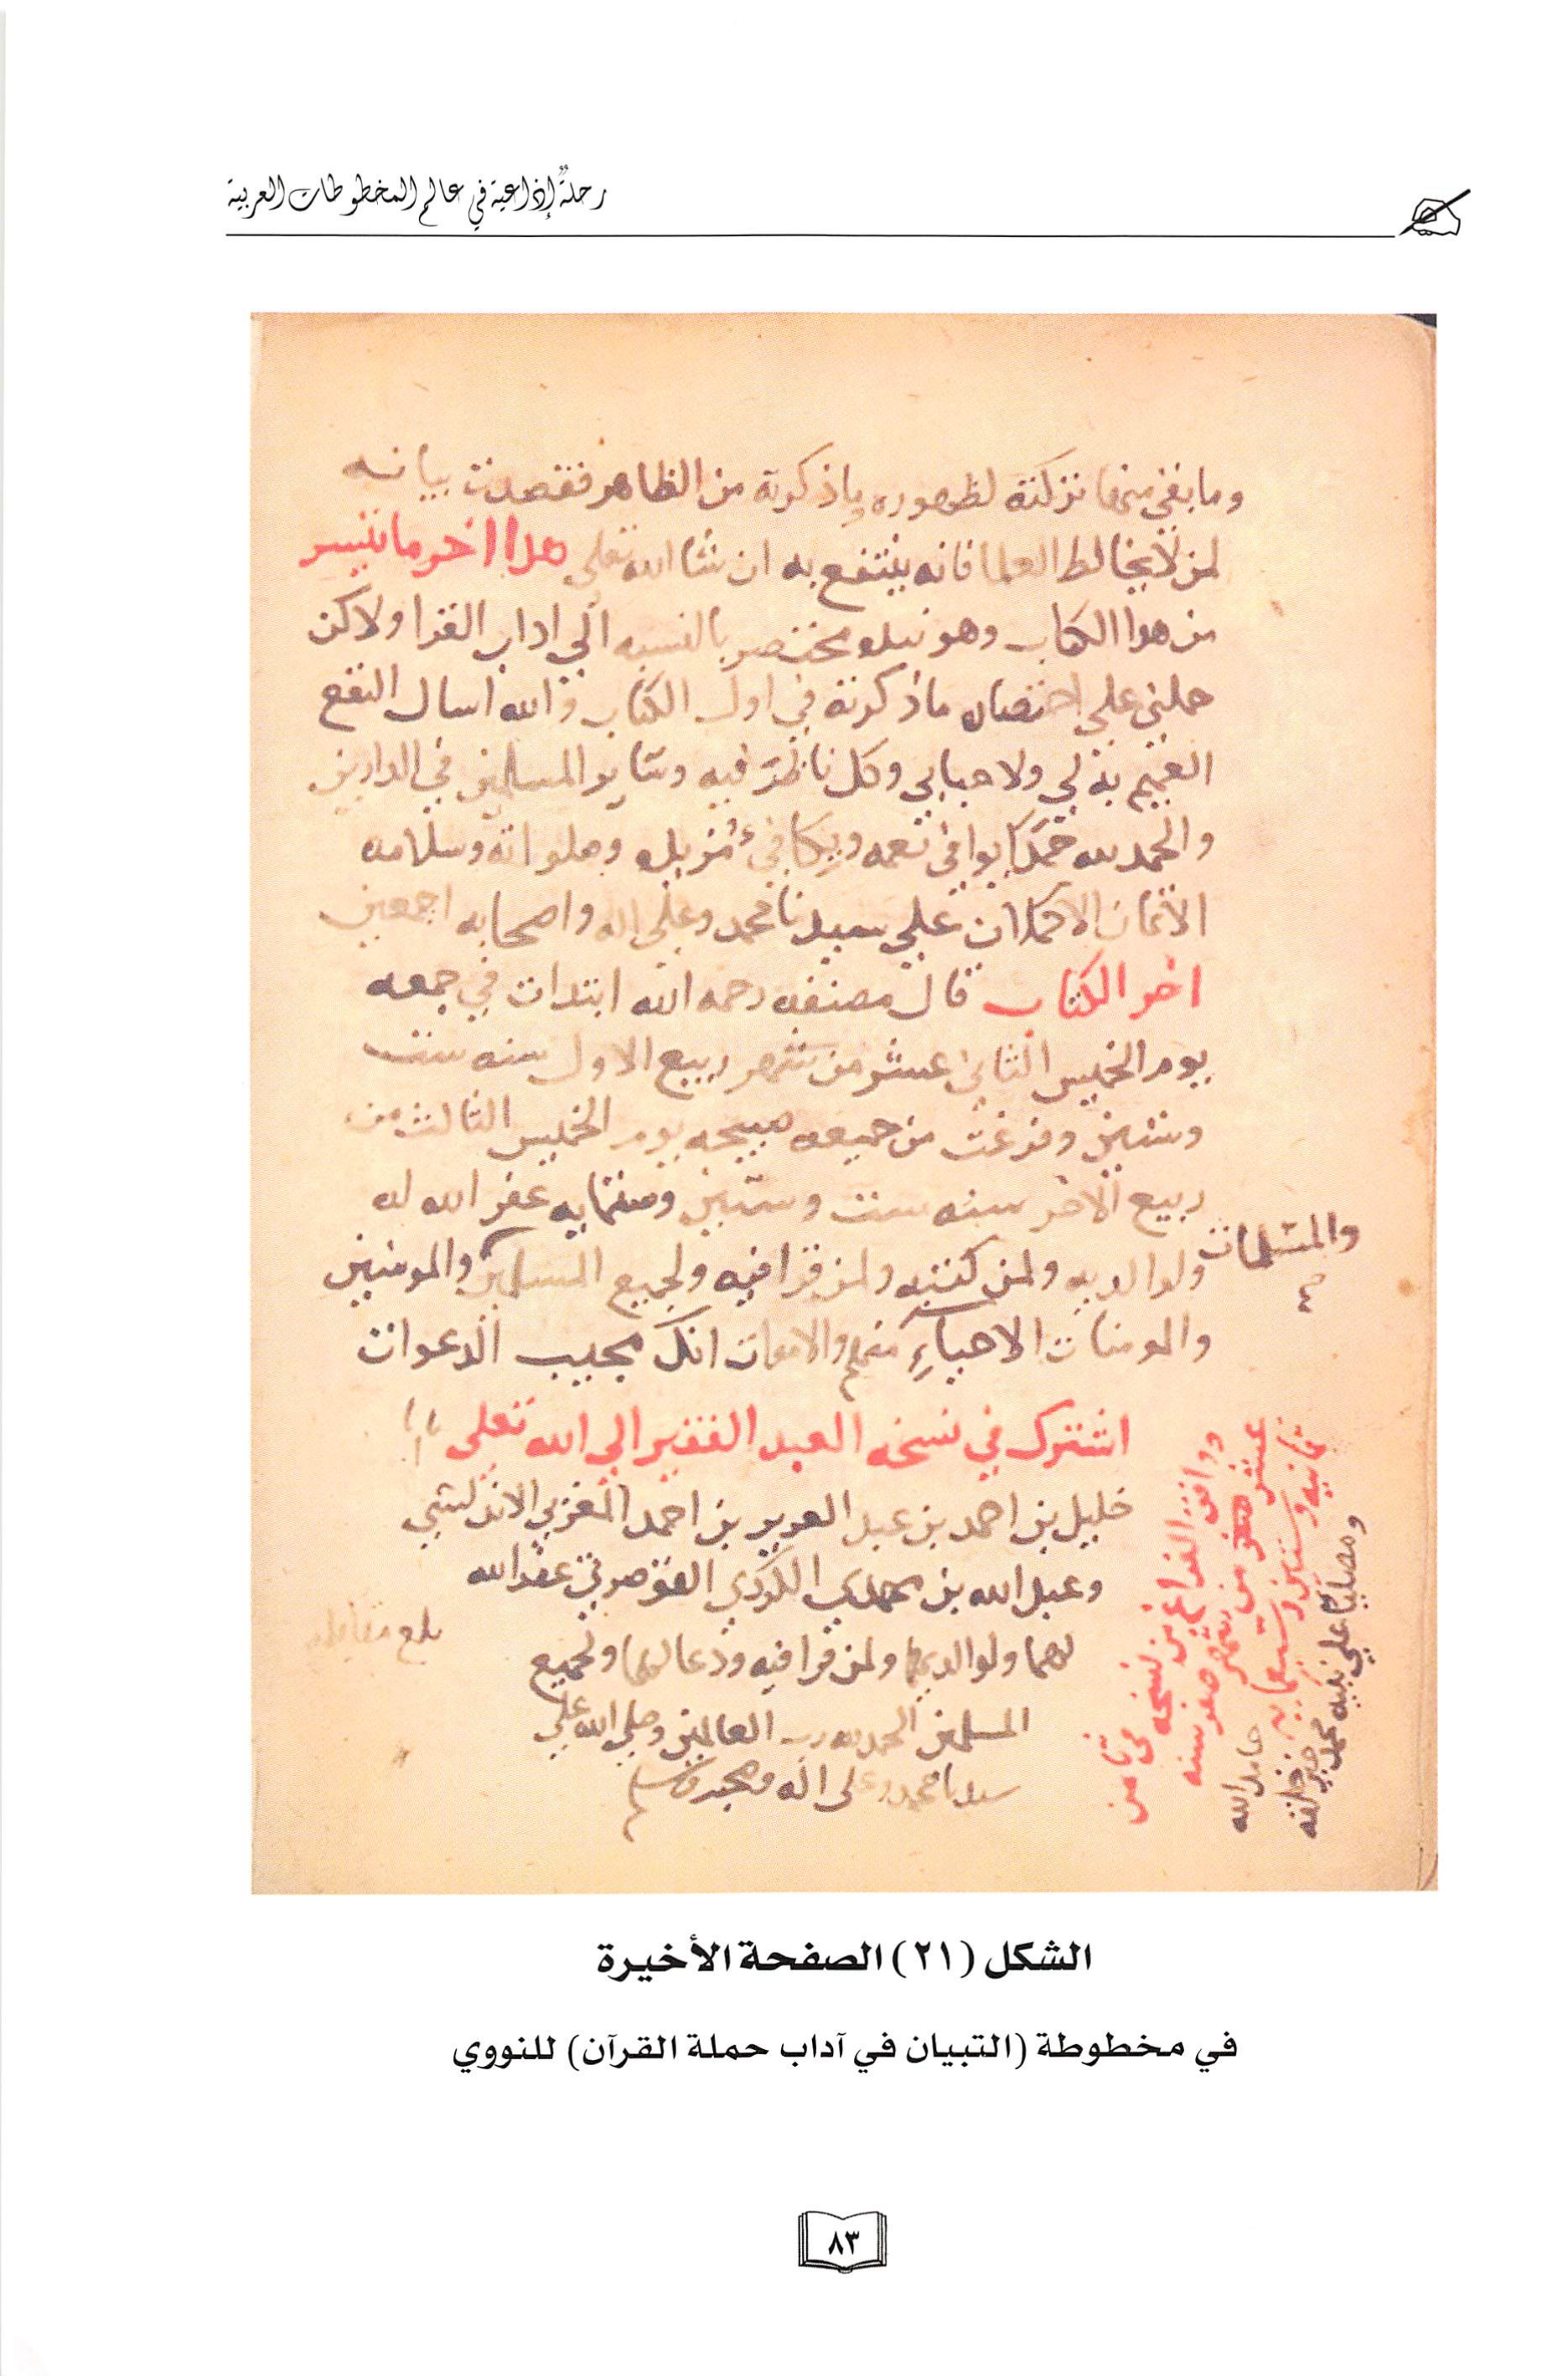 رحلةٌ إذاعية في عالم المخطوطات العربية
وما بقي منها تركته لظهوره وما ذكرته من الظاهر فقصدت بيانه
لمن لا يخالط العلما فانه ينتفع به ان شا الله تعلى هذا اخر ما تيسر
من هذا الكتاب وهو نبذه مختصره بالنسبه الي اداب القرا ولاكن
حملني علي اختصاره ما ذكرته في اول الكتاب والله اسال النفع
العميم به لي ولاحبابي وكل ناظر فيه وساير المسلمين في الدارين
والحمد لله حمدًا يوافي نعمه ويكافيء مزيده وصلواته وسلامه
الاتمان الاكملان علي سيدنا محمد وعلي اله واصحابه اجمعين
اخر الكتاب قال مصنفه رحمه الله ابتدات في جمعه
يوم الخميس الثاني عشر من شهر ربيع الاول سنه ست
وستين وفرغت من جميعه صبيحه يوم الخميس الثالث من
ربيع الاخر سنه ست وستين وستمايه غفر الله له
ولوالديه ولمن كتبه ولمن قرا فيه ولجميع المسلمين والمومنين
والمسلمات
صح
والمومنات الاحياءِ منهم والاموات انك مجيب الدعوات
اشترك في نسخه العبد الفقير الي الله تعلى
خليل بن احمد بن عبد العزيز بن احمد المغربي الاندلسي
وعبد الله بن محمد الكردي غفر الله
لهما ولوالديهما ولمن قرا فيه ودعا لهما ولجميع
المسلمين الحمد لله رب العالمين وصلي الله علي
سيدنا محمد وعلى اله وصحبه وسلم
بلغ مقابله
ووافق الفراغ من نسخه في ثامن
عشر من شهر صفر سنه
ثمانيه وستين وسبعمايه حامدا لله
ومصليا علي نبيه محمد خير خلقه
الشكل (٢١) الصفحة الأخيرة
في مخطوطة (التبيان في آداب حملة القرآن) للنووي
٨٣